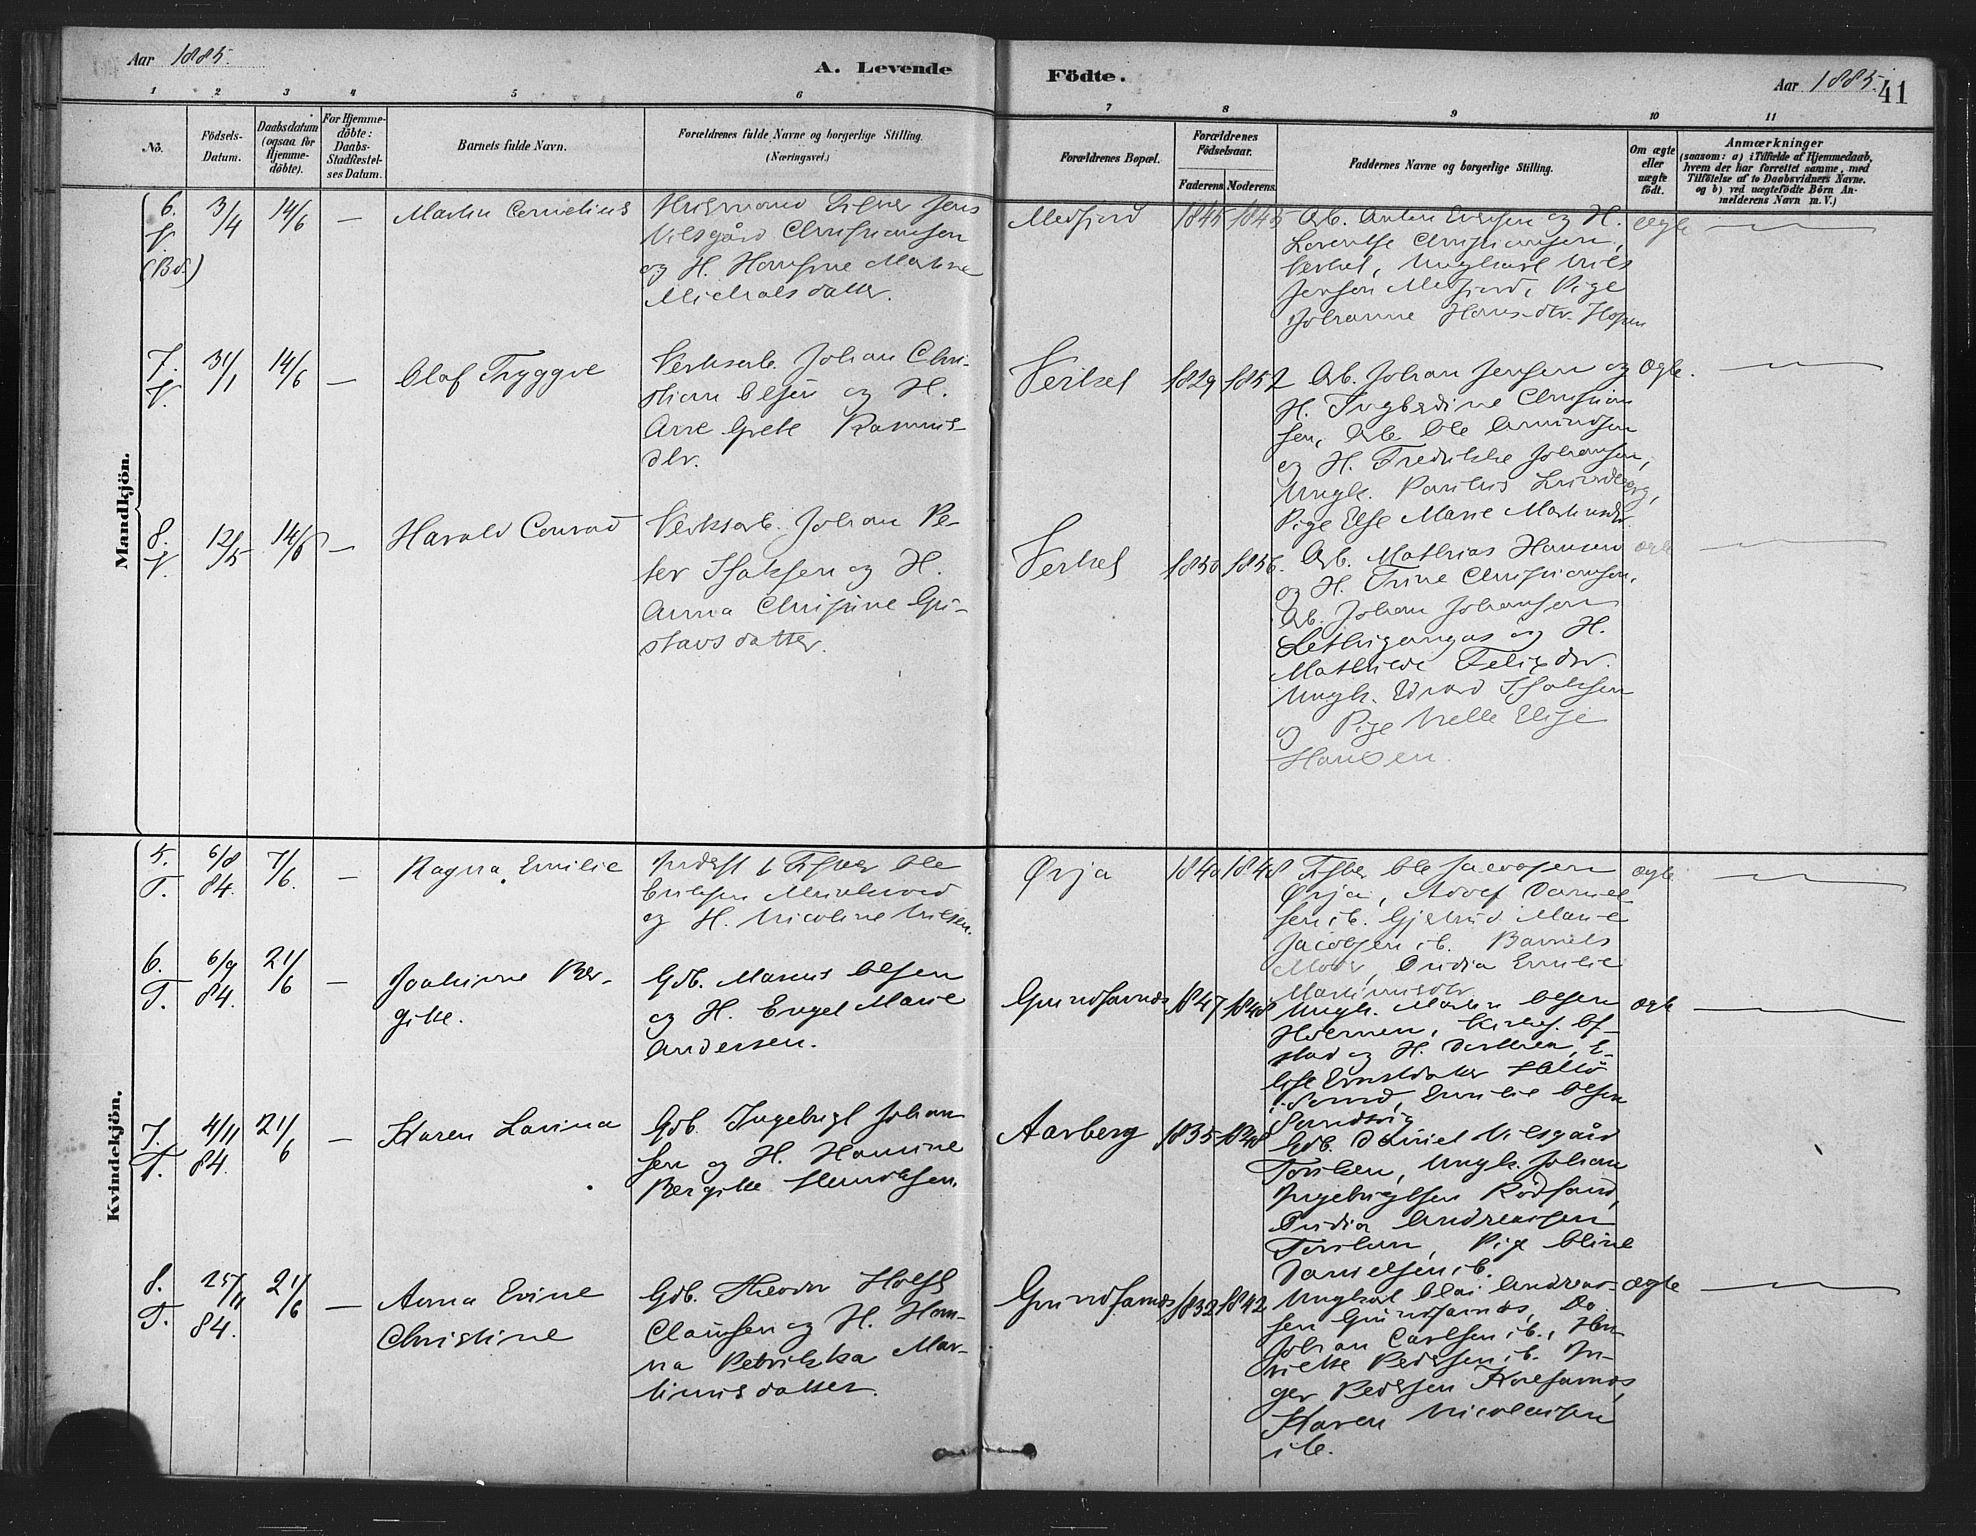 Aar 1885.
A. Levende Födte.
Aar 1885.
41
1 2 3 4 5 6 7 8 9 10 11
No.
Födsels-Datum.
Daabsdatum (ogsaa for Hjemme-döbte).
For Hjemme-döbte: Daabs-Stadfæstel-ses Datum.
Barnets fulde Navn.
Forældrenes fulde Navne og borgerlige Stilling.
(Næringsvei.)
Forældrenes Bopæl.
Forældrenes Födselsaar.
Faderens Moderens
Faddernes Navne og borgerlige Stilling.
Om ægte eller uægte födt.
Anmærkninger
(saasom: a) i Tilfælde af Hjemmedaab,
hvem der har forrettet samme, med
Tilföielse af to Daabsvidners Navne.
og b) ved uægtefödte Börn An-
melderens Navn m. V.)
Mandkjön.
6. 3/4 14/6 —
Martin Cornelius
Husmand Fisker Jens
Nilsgård Christiansen
og H. Hansine Martine
Michalsdatter.
Medfjord
1845 1845
Arb. Anton Evensen og H.
Lorentse Christiansen,
Verket, Ungkarl Nils
Jensen Medfjord, Pige
Johanne Hans-dtr. Hopen
ægte
7. 31/1 14/6 —
Olaf Tryggve
Verksarb. Johan Chri-
stian Olsen og H.
Ane Grete Rasmus-
dtr.
Verket
1829 1852
Arb. Johan Jensen og
H. Ingberdine Christian
sen, Arb. Ole Amundsen
og H. Fredrikke Johansen,
Ungk. Paulus
Pige Else Marie Martinsdtr.
Ægte.
8. 12/5 14/6 —
Harald Conrad
Verksarb. Johan Pe-
ter Isaksen og H.
Anna Christine Gu-
stavsdatter.
Verket
1850 1856.
Arb. Mathias Hansen
og H. Trine Christiansen,
Arb. Johan Johansen
og H.
Mathilde Felixdtr.
Ungk. Edvard Isaksen
og Pige Nelle Elise
Hansen.
ægte
Kvindekjön.
5. T. 6/8 84. 7/6. —
Ragna Emilie
Inderst & Fisker Ole
Eriksen
og H. Nicoline Nilsen.
Ørja
1840 1848
Fisker Ole Jacobsen
Ørja, Adolf Daniel
sen ib. Gjertrud Marie
Jacobsen ib. Barnets
Moder, India Emilie
Martinusdtr.
ægte
6. T. 6/9 84. 21/6 —
Joakime Ber-
gitte.
Gdb. Marius Olsen
og H. Engel Marie
Andersen.
Grundfarnæs
1847 1848
Ungk. Martin Olsen
Kirkes. Of-
stad og H. Dorthea, E-
lise Ernstdatter
Emilie Olsen
ægte
7. T. 4/11 84. 21/6 —
Karen Lavina
Gdb. Ingebrigt Johan
sen og H. Hanine
Bergitte Hendriksen.
Aarberg
1835 1848
Gdb. Daniel Nilsgård
Torsken, Ungk. Johan
Ingebrigtsen Rødsand,
India Andreassen
Torsken, Pige Oline
Danielsen ib.
8. T. 25/11 84. 21/6 —
Anna Evine
Christine
Gdb. Theodor Holst
Clausen og H. Han-
na Petrikka Mar-
tinusdatter.
Grundfarnæs
1832 1842
Ungkarl Olai Andreas-
sen Grundfarnæs, Do
Johan Carlsen ib., Hen-
riette Pedersen ib. In-
ger Pedersen Kalfarnæs,
Karen Nicolaisen
ib.
ægte